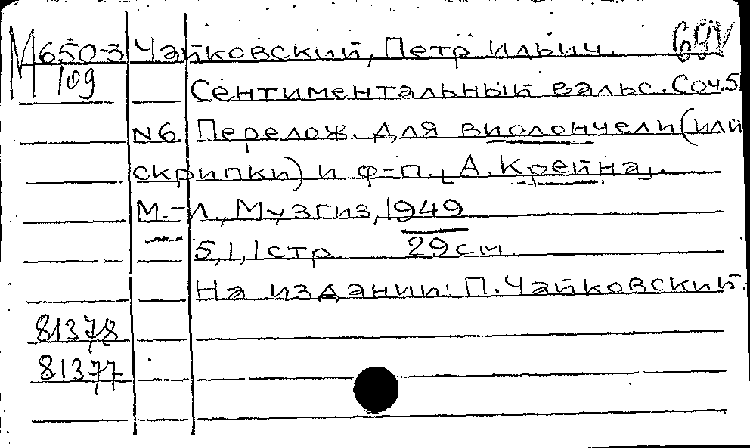 М650-3 Чайковский, Петр Ильич.
109 Сентиментальный вальс. Соч.5
N6. Перелож. для виолончели (или
скрипки) и ф-п. А. Крейна.
М.-Л., Музгиз, 1949
5,1,1 стр. 29 см.
На издании: П. Чайковский.
81378
81377